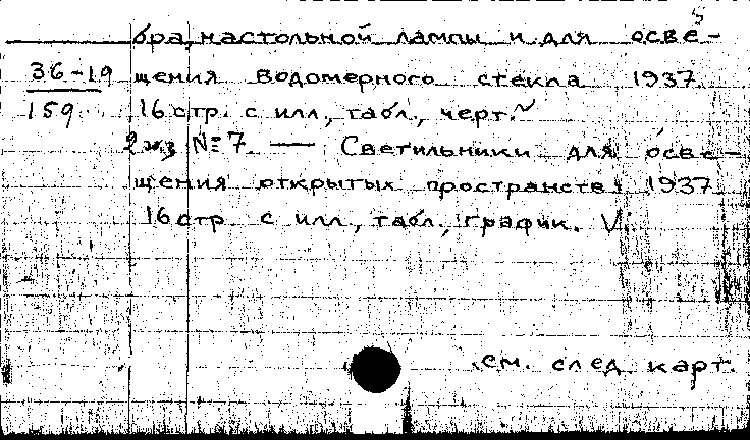 5
бра, настольной лампы и для осве-
36-19 щения водомерного стекла 1937
159 16 стр. с илл., табл., черт.
2 экз №7. — Светильники для осве-
щения открытых пространств 1937
16 стр с илл., табл., график. V
см. след. карт.